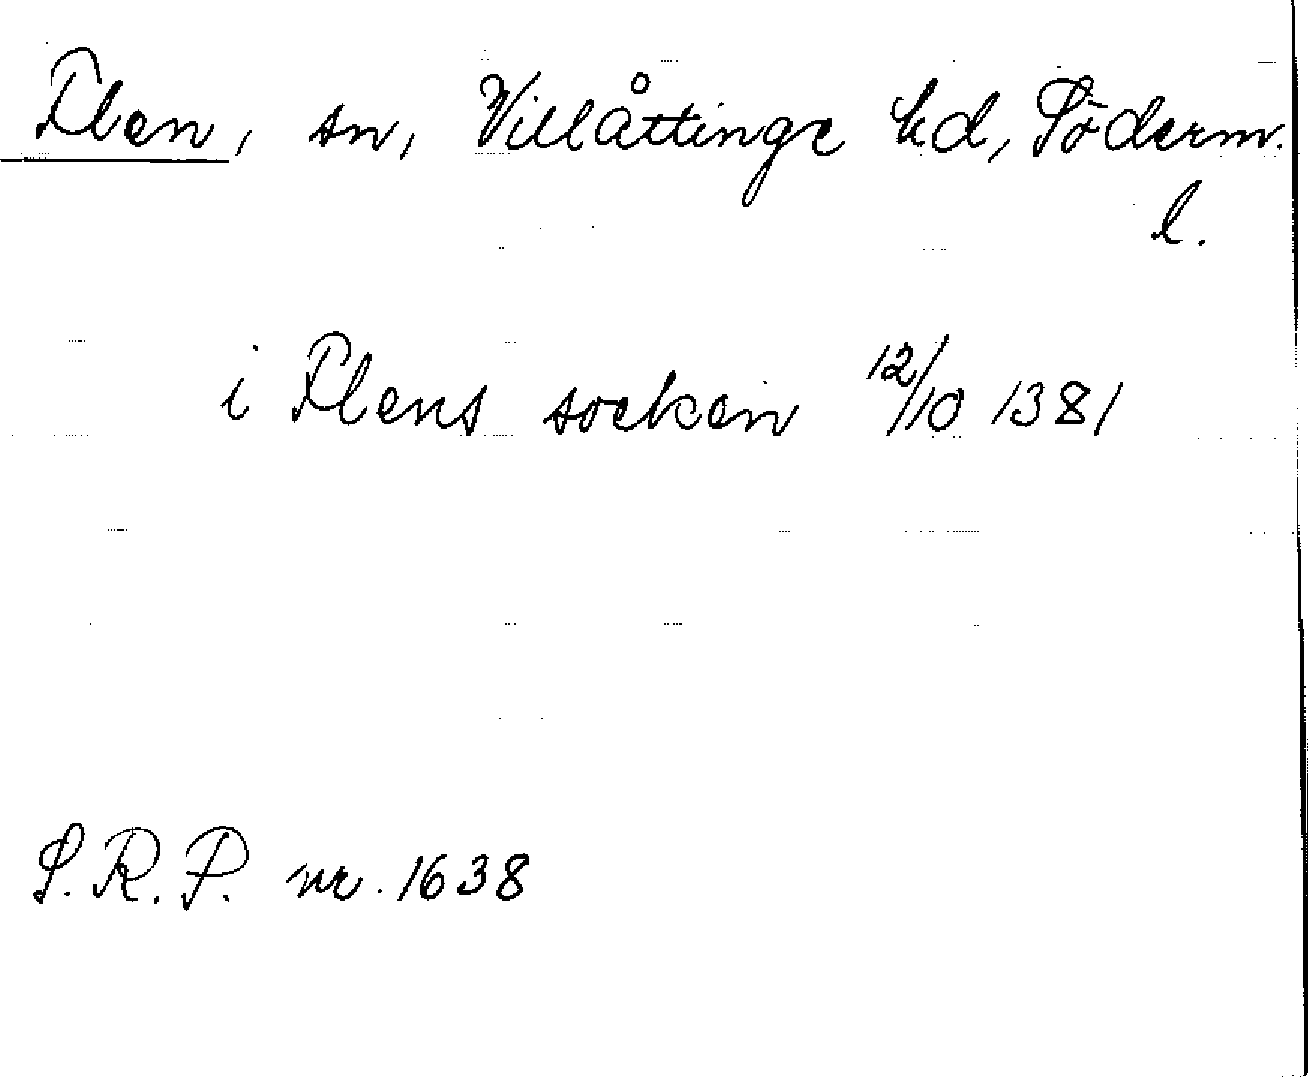 Flen, sn, Villåttinge hd, Söderm.
l.
i Flens socken 12/10 1381
S.R.P. nr. 1638